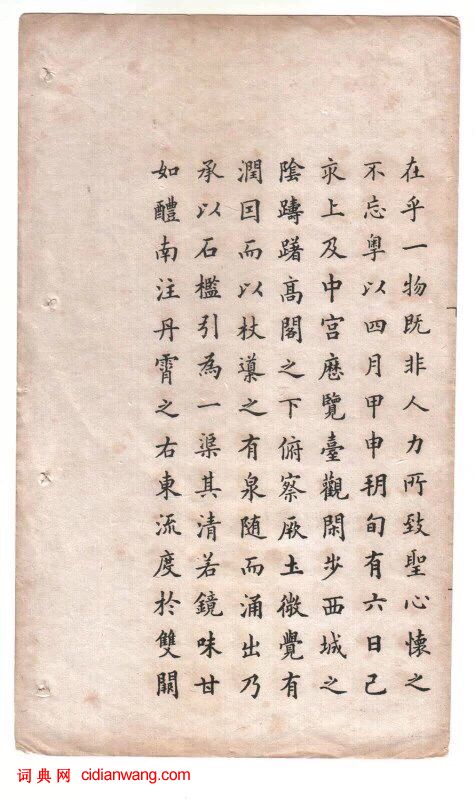 在乎一物既非人力所致聖心懷之
不忘粤以四月甲申朔旬有六日己
亥上及中宮歷覽臺觀閑步西城之
陰躊躇高閣之下俯察厥土微覺有
潤因而以杖導之有泉随而涌出乃
承以石檻引為一渠其清若鏡味甘
如醴南注丹霄之右東流度於雙闕
词典网 cidianwang.com